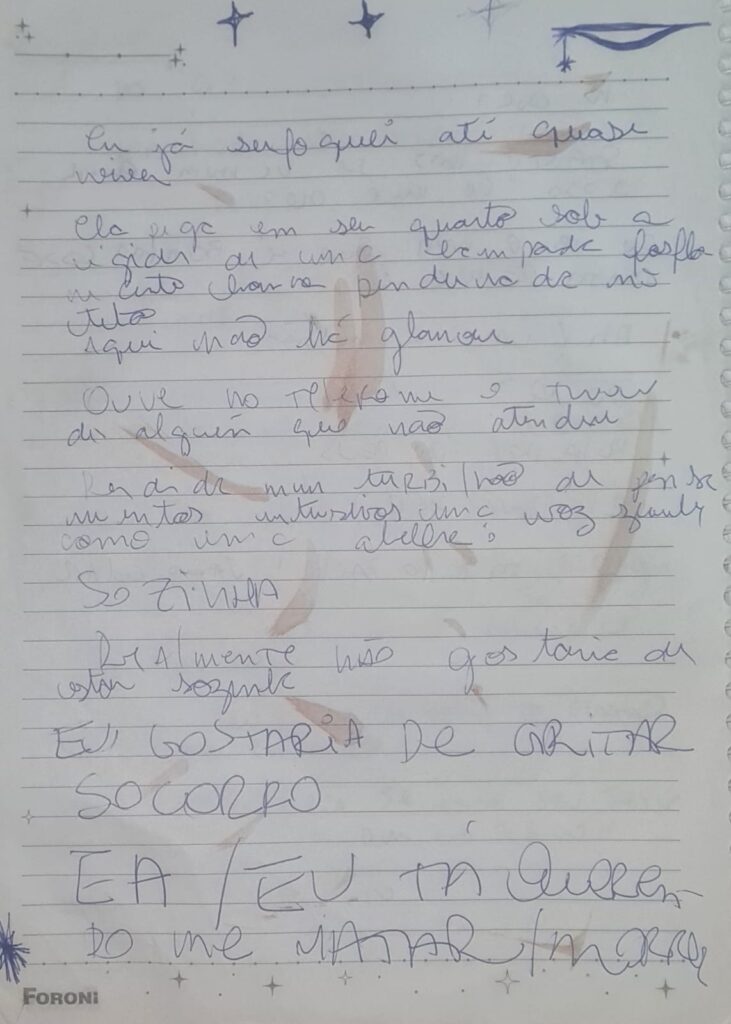 Eu já sufoquei até quase
viver
Ela em seu quarto sob a
de uma lampada
branca pendurada no
teto
aqui não há glamour
Ouve no telefone o
de alguén que não atendeu
Rendida num turbilhão de pensa
mentos intusivos uma voz
como uma abelha:
SOZINHA
REALMENTE NÃO gostaria de
estar sozinha
EU GOSTARIA DE GRITAR
SOCORRO
EA / EU TÁ QUEREN-
DO me MATAR / MORRER
FORONI